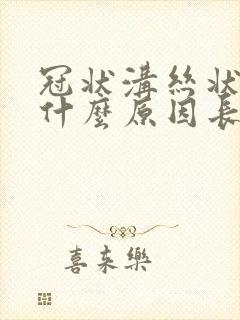 冠状溝絲状
什麼原因長
喜来樂